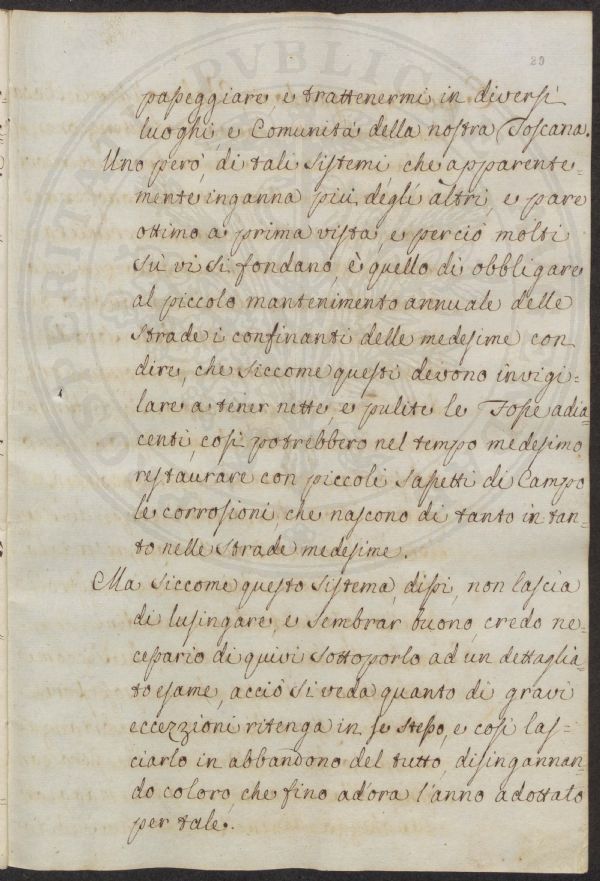 89
passeggiare, e trattenermi in diversi
luoghi, e Comunità della nostra Toscana.
Uno però, di tali sistemi che apparente=
mente inganna più degli altri, e pare
ottimo a prima vista, e perciò molti
sù vi si fondano, è quello di obbligare
al piccolo mantenimento annuale delle
strade i confinanti delle medesime con
dire, che siccome questi devono invigi=
lare a tener nette, e pulite le Fosse adia=
centi, così potrebbero nel tempo medesimo
restaurare con piccoli sassetti di Campo
le corrosioni, che nascono di tanto in tan=
to nelle strade medesime.
Ma siccome questo sistema, dissi, non lascia
di lusingare, e sembrar buono, credo ne=
cessario di quivi sottoporlo ad un dettaglia=
to esame, acciò si veda quanto di gravi
eccezzioni ritenga in se stesso, e così las=
ciarlo in abbandono del tutto, disingannan=
do coloro, che fino ad'ora l'anno adottato
per tale.